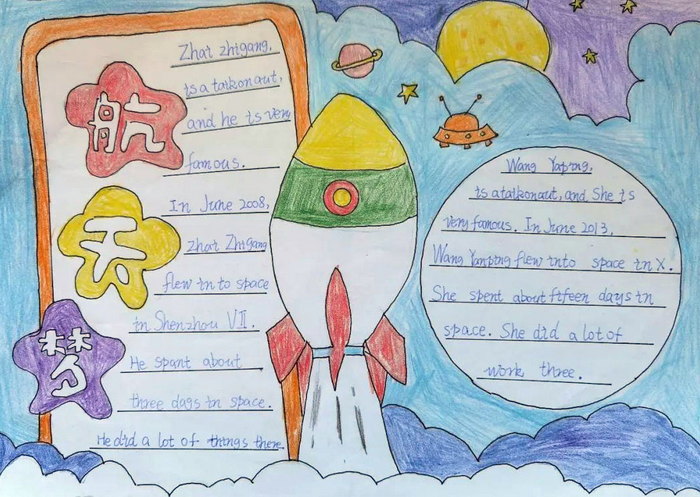 航
天
梦
Zhat zhigang,
is a taikonaut,
and he is very
famous.
In June 2008,
zhat Zhigang
flew in to space
in Shenzhou VII.
He spant about
three days in space.
He did a lot of things there.
Wang Yaping,
is ataikonaut, and, She is
very famous. In June 2013,
Wang Yanping flew into space in X.
She spent about fifeen days in
space. She did a lot of
work three.